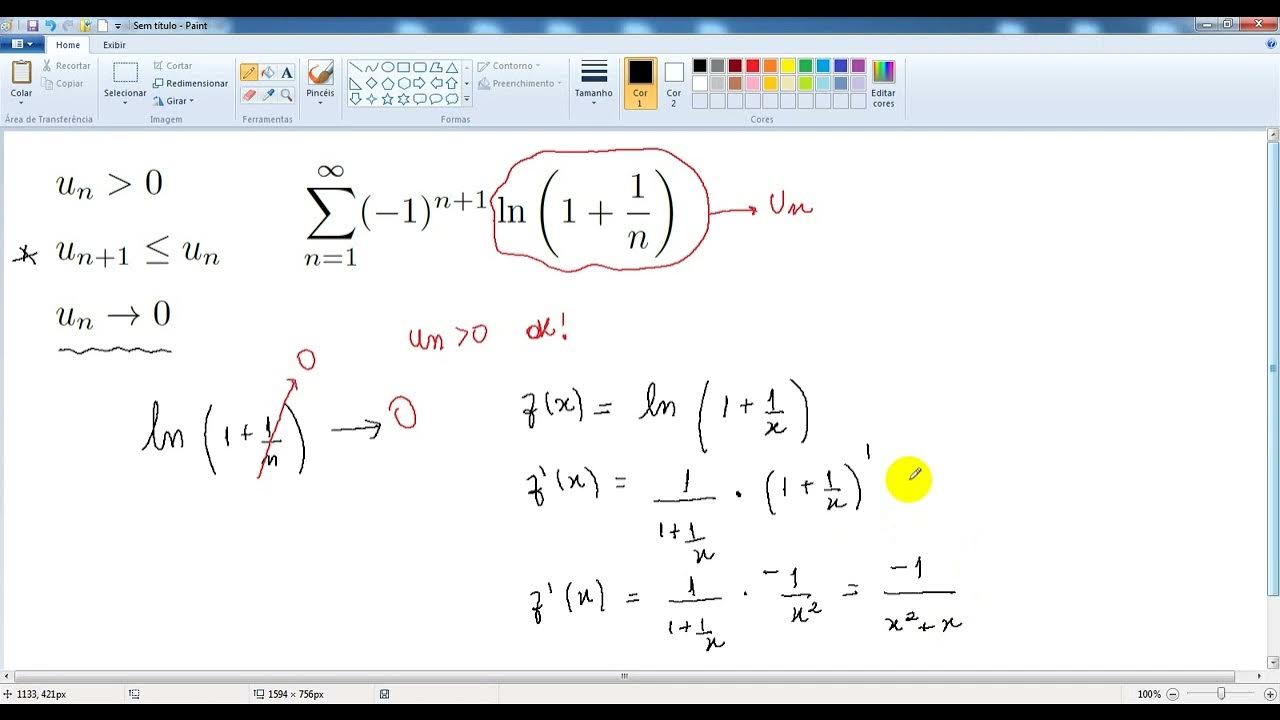 Sem título - Paint
Home Exibir
Colar
Recortar
Copiar
Área de Transferência
Selecionar
Cortar
Redimensionar
Girar
Imagem
A
Ferramentas
Pincéis
Contorno
Preenchimento
Formas
Tamanho
Cor 1
Cor 2
Editar cores
Cores
u_n > 0
* u_{n+1} ≤ u_n
u_n → 0
∑_{n=1}^{∞} (-1)^{n+1} ln(1 + 1/n) → Un
un > 0 ok!
ln(1 + 1/n) → 0
0
f(x) = ln(1 + 1/x)
f'(x) = 1/(1 + 1/x) · (1 + 1/x)'
f'(x) = 1/(1 + 1/x) · -1/x² = -1/(x² + x)
1133, 421px
1594 × 756px
100%